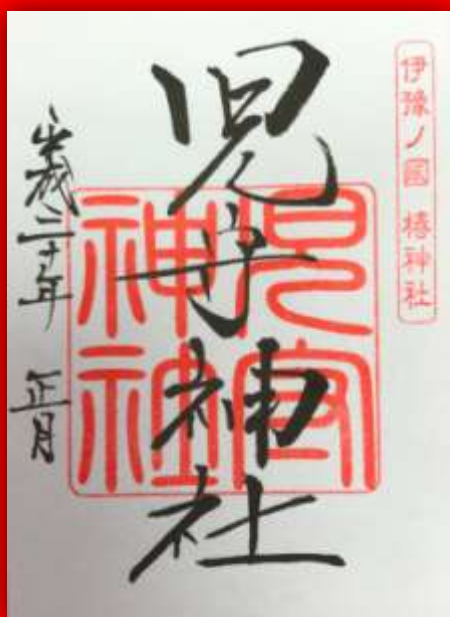 伊豫ノ國 椿神社
児守神社
兒守神社
平成二十年 正月